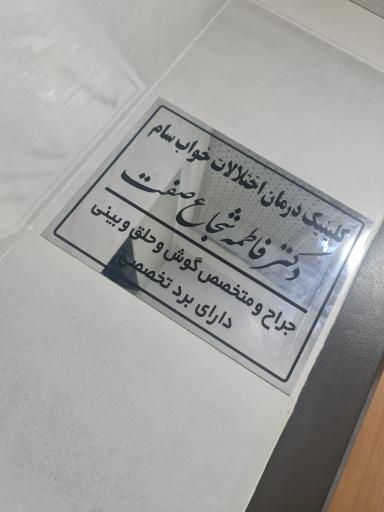 کلینیک درمان اختلالات خواب سام
دکتر فاطمه شجاع صفت
جراح و متخصص گوش و حلق و بینی
دارای برد تخصصی